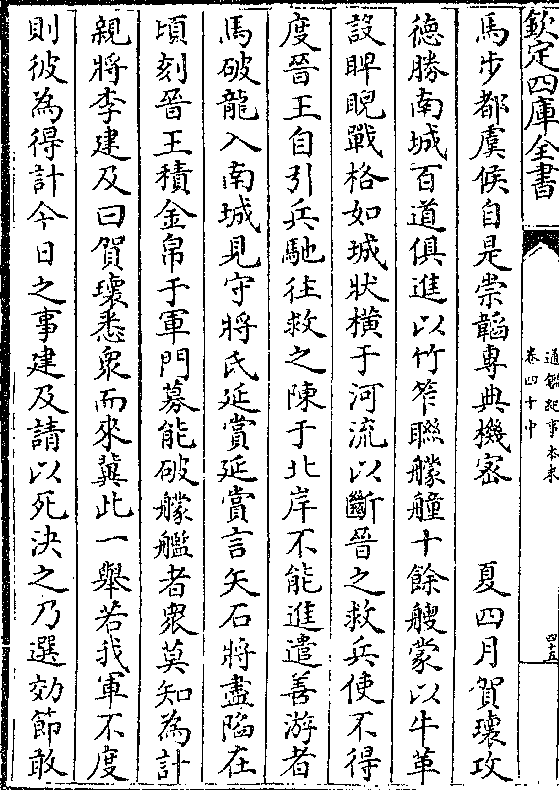 欽定四庫全書
通鑑紀事本末
卷四十中
四十五
馬步都虞候自是崇韜專典機密　夏四月賀瓌攻
德勝南城百道俱進以竹笮聯艨艟十餘艘蒙以牛革
設睥睨戰格如城狀橫于河流以斷晉之救兵使不得
度晉王自引兵馳往救之陳于北岸不能進遣善游者
馬破龍入南城見守將氏延賞延賞言矢石將盡陷在
頃刻晉王積金帛于軍門募能破艨艦者衆莫知為計
親將李建及曰賀瓌悉衆而來冀此一舉若我軍不度
則彼為得計今日之事建及請以死決之乃選効節敢